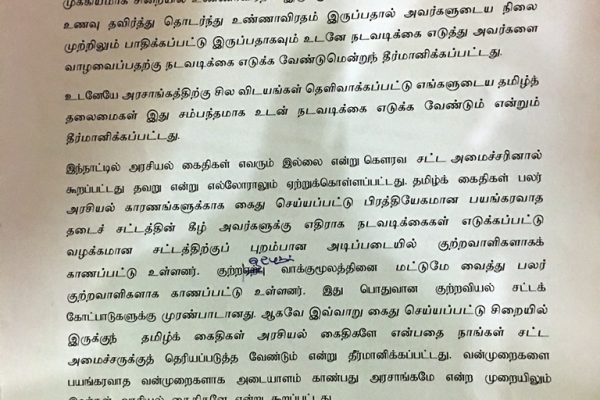 முக்கியமாக சிறையில்
உணவு தவிர்த்து தொடர்ந்து உண்ணாவிரதம் இருப்பதால் அவர்களுடைய நிலை
முற்றிலும் பாதிக்கப்பட்டு இருப்பதாகவும் உடனே நடவடிக்கை எடுத்து அவர்களை
வாழவைப்பதற்கு நடவடிக்கை எடுக்க வேண்டுமென்றுந் தீர்மானிக்கப்பட்டது.
உடனேயே அரசாங்கத்திற்கு சில விடயங்கள் தெளிவாக்கப்பட்டு எங்களுடைய தமிழ்த்
தலைமைகள் இது சம்பந்தமாக உடன் நடவடிக்கை எடுக்க வேண்டும் என்றும்
தீர்மானிக்கப்பட்டது.
இந்நாட்டில் அரசியல் கைதிகள் எவரும் இல்லை என்று கௌரவ சட்ட அமைச்சரினால்
கூறப்பட்டது தவறு என்று எல்லோராலும் ஏற்றுக்கொள்ளப்பட்டது. தமிழ்க் கைதிகள் பலர்
அரசியல் காரணங்களுக்காக கைது செய்யப்பட்டு பிரத்தியேகமான பயங்கரவாத
தடைச் சட்டத்தின் கீழ் அவர்களுக்கு எதிராக நடவடிக்கைகள் எடுக்கப்பட்டு
வழக்கமான சட்டத்திற்குப் புறம்பான அடிப்படையில் குற்றவாளிகளாகக்
காணப்பட்டு உள்ளனர். வாக்குமூலத்தினை மட்டுமே வைத்து பலர்
குற்றவாளிகளாக காணப்பட்டு உள்ளனர். இது பொதுவான குற்றவியல் சட்டக்
கோட்பாடுகளுக்கு முரண்பாடானது. ஆகவே இவ்வாறு கைது செய்யப்பட்டு சிறையில்
இருக்குந் தமிழ்க் கைதிகள் அரசியல் கைதிகளே என்பதை நாங்கள் சட்ட
அமைச்சருக்குத் தெரியப்படுத்த வேண்டும் என்று தீர்மானிக்கப்பட்டது. வன்முறைகளை
பயங்கரவாத வன்முறைகளாக அடையாளம் காண்பது அரசாங்கமே என்ற முறையிலும்